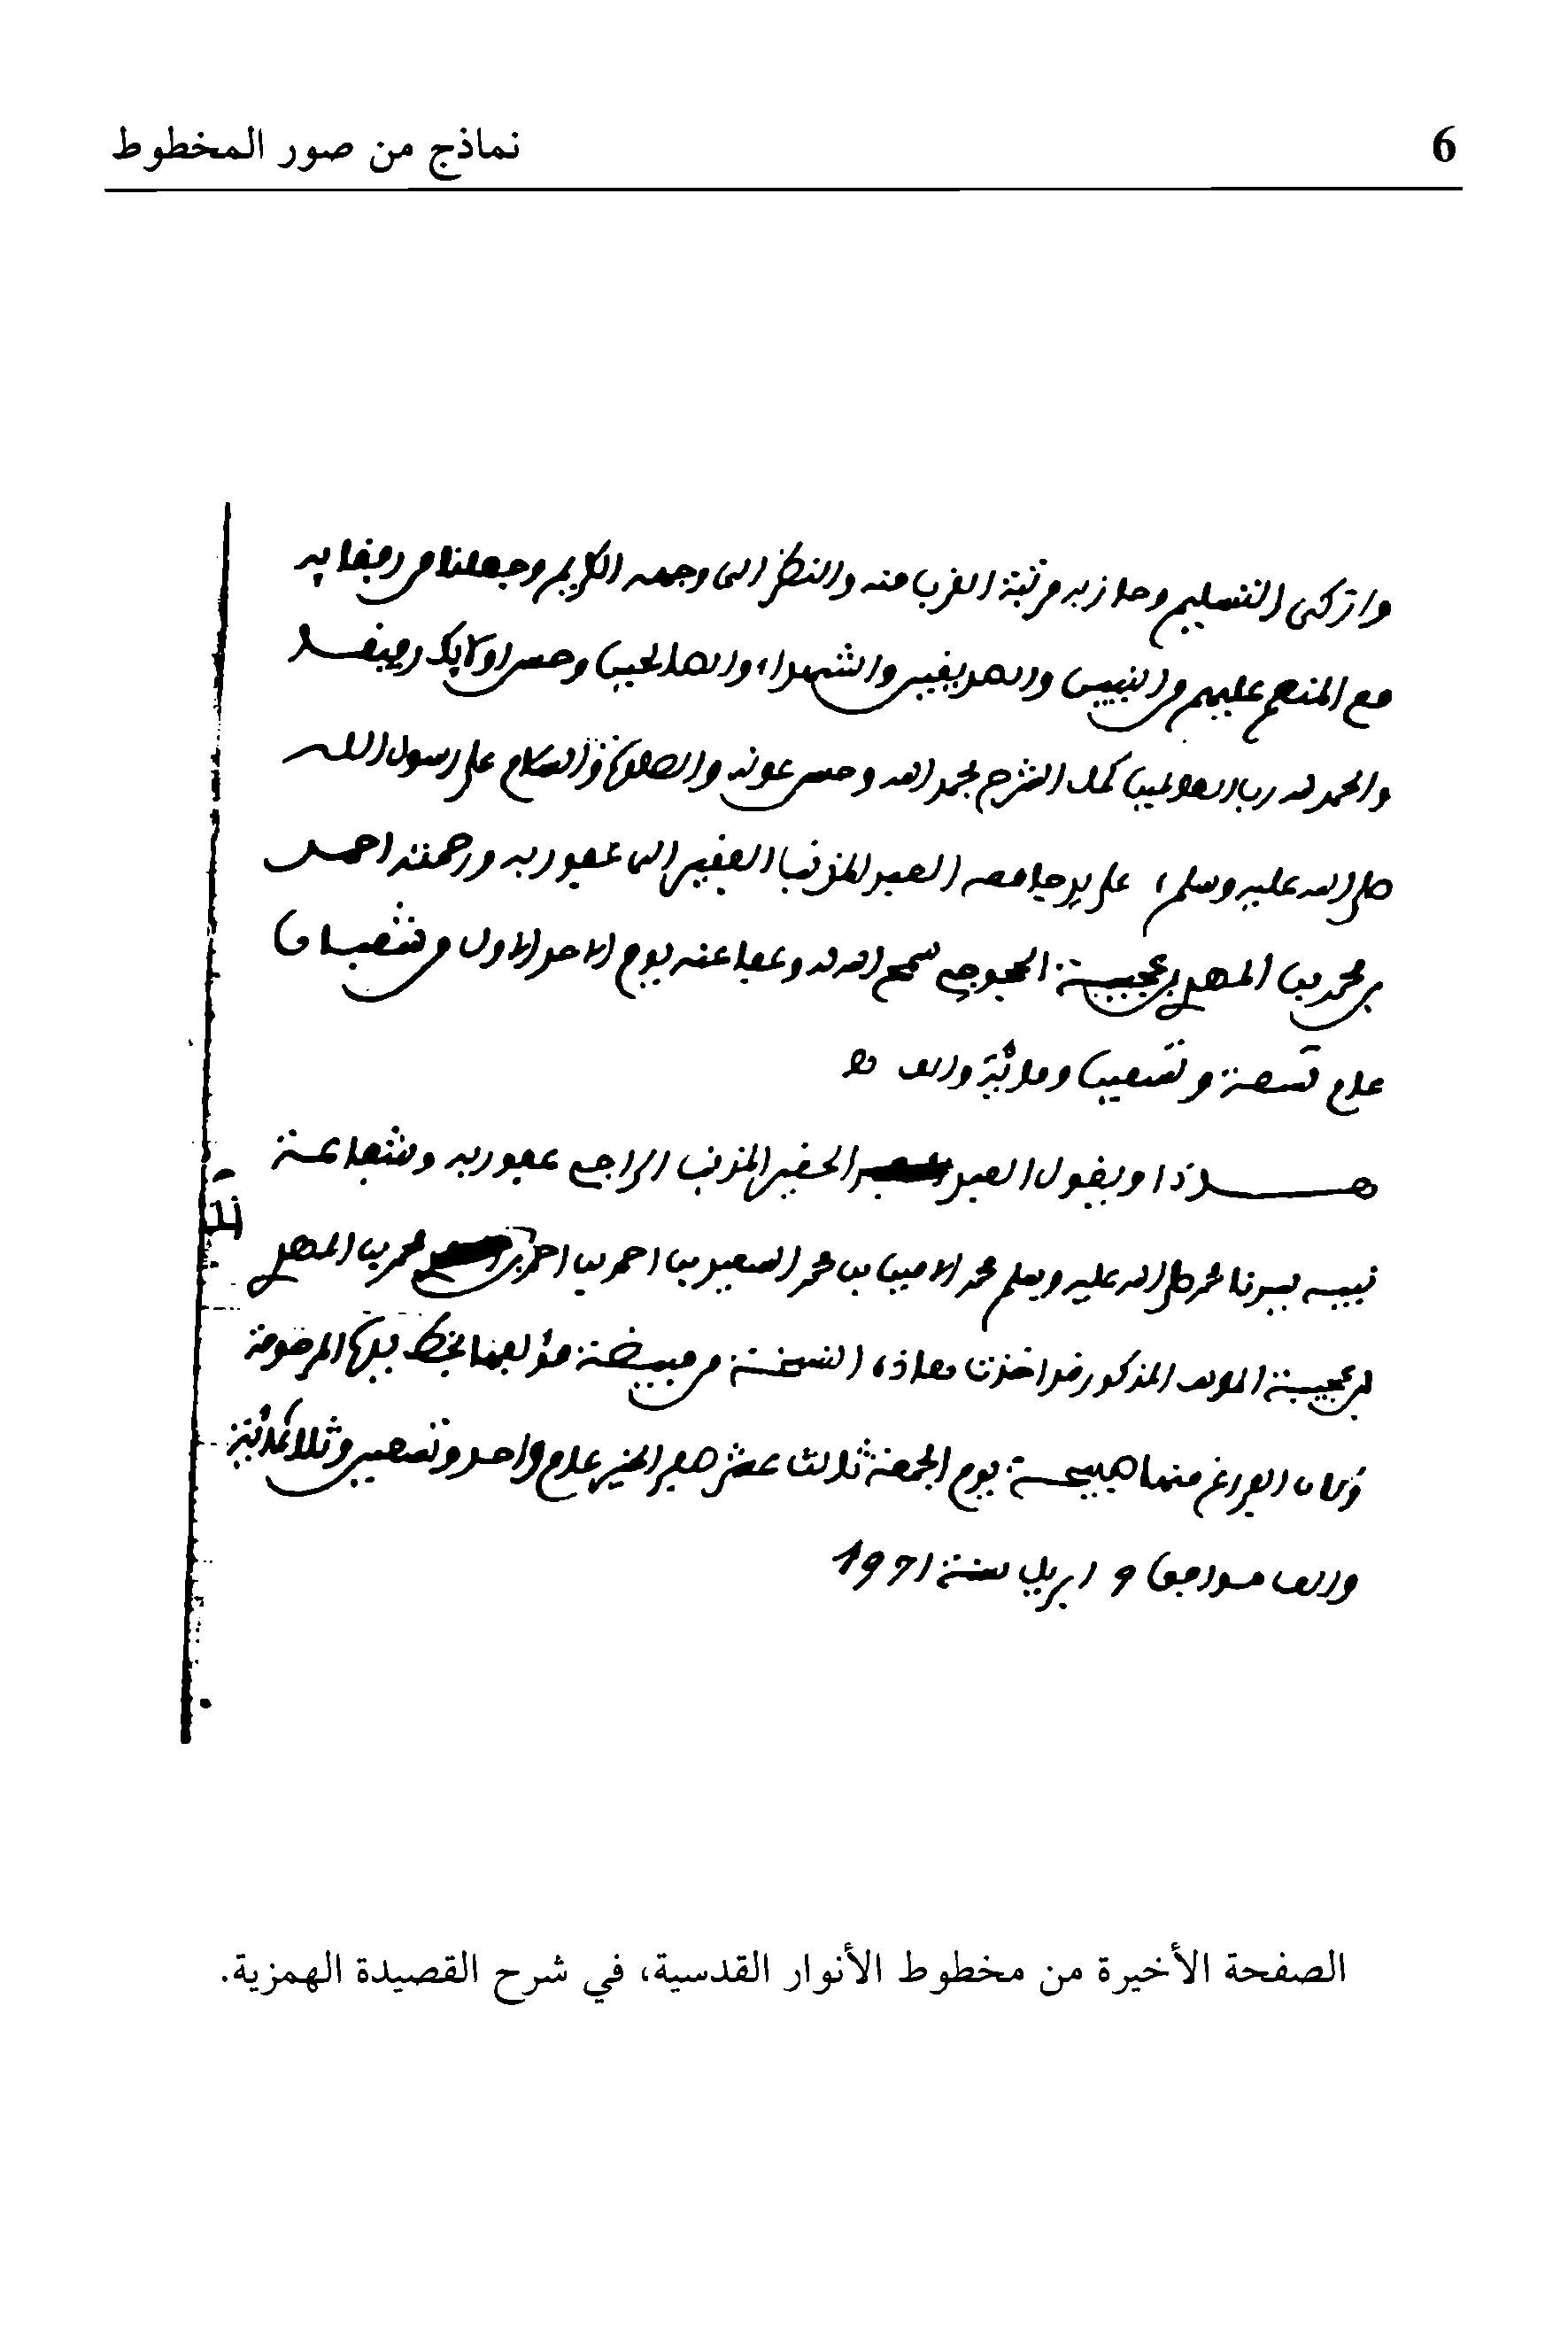 نماذج من صور المخطوط
6
وازكى التسليم وحاز به مرتبة القرب منه والنظر الى وجهه الكريم وجعلنا من رفقايه
مع المنعم عليهم من النبيين والصديقين والشهداء والصالحين وحسن اولايك رفيقــا
والحمد لله رب العالمين كمل الشرح بحمد الله وحسن عونه والصلاة والسلام على رسول اللــه
صلى الله عليه وسلم، على يد جامعه العبد المذنب الفقير الى عفو ربه ورحمته احمــد
بن محمد بن المهدي بن عجيبــة الحجوجي سمح الله له وعفا عنه يوم الاحد الاول من شعبــان
عام تسعة وتسعين ومائة والف
هـــذا ويقول العبد الحقير المذنب الراجي عفو ربه وشفاعــة
نبيــه سيدنا محمد صلى الله عليه وسلم محمد الامين بن محمد السعيد بن احمد بن احمد بن محمد بن المهدي
بن عجيبــة المولف المذكور قد اخذت هاذه النسخــة من مبيضــة مؤلفها بخط يده المرحومة
وكان الفراغ منها صبيحــة يوم الجمعة ثالث عشر صفر الخير عام واحد وتسعين وثلاثمائة
والف موافق 9 ابريل سنة 1971
الصفحة الأخيرة من مخطوط الأنوار القدسية، في شرح القصيدة الهمزية.